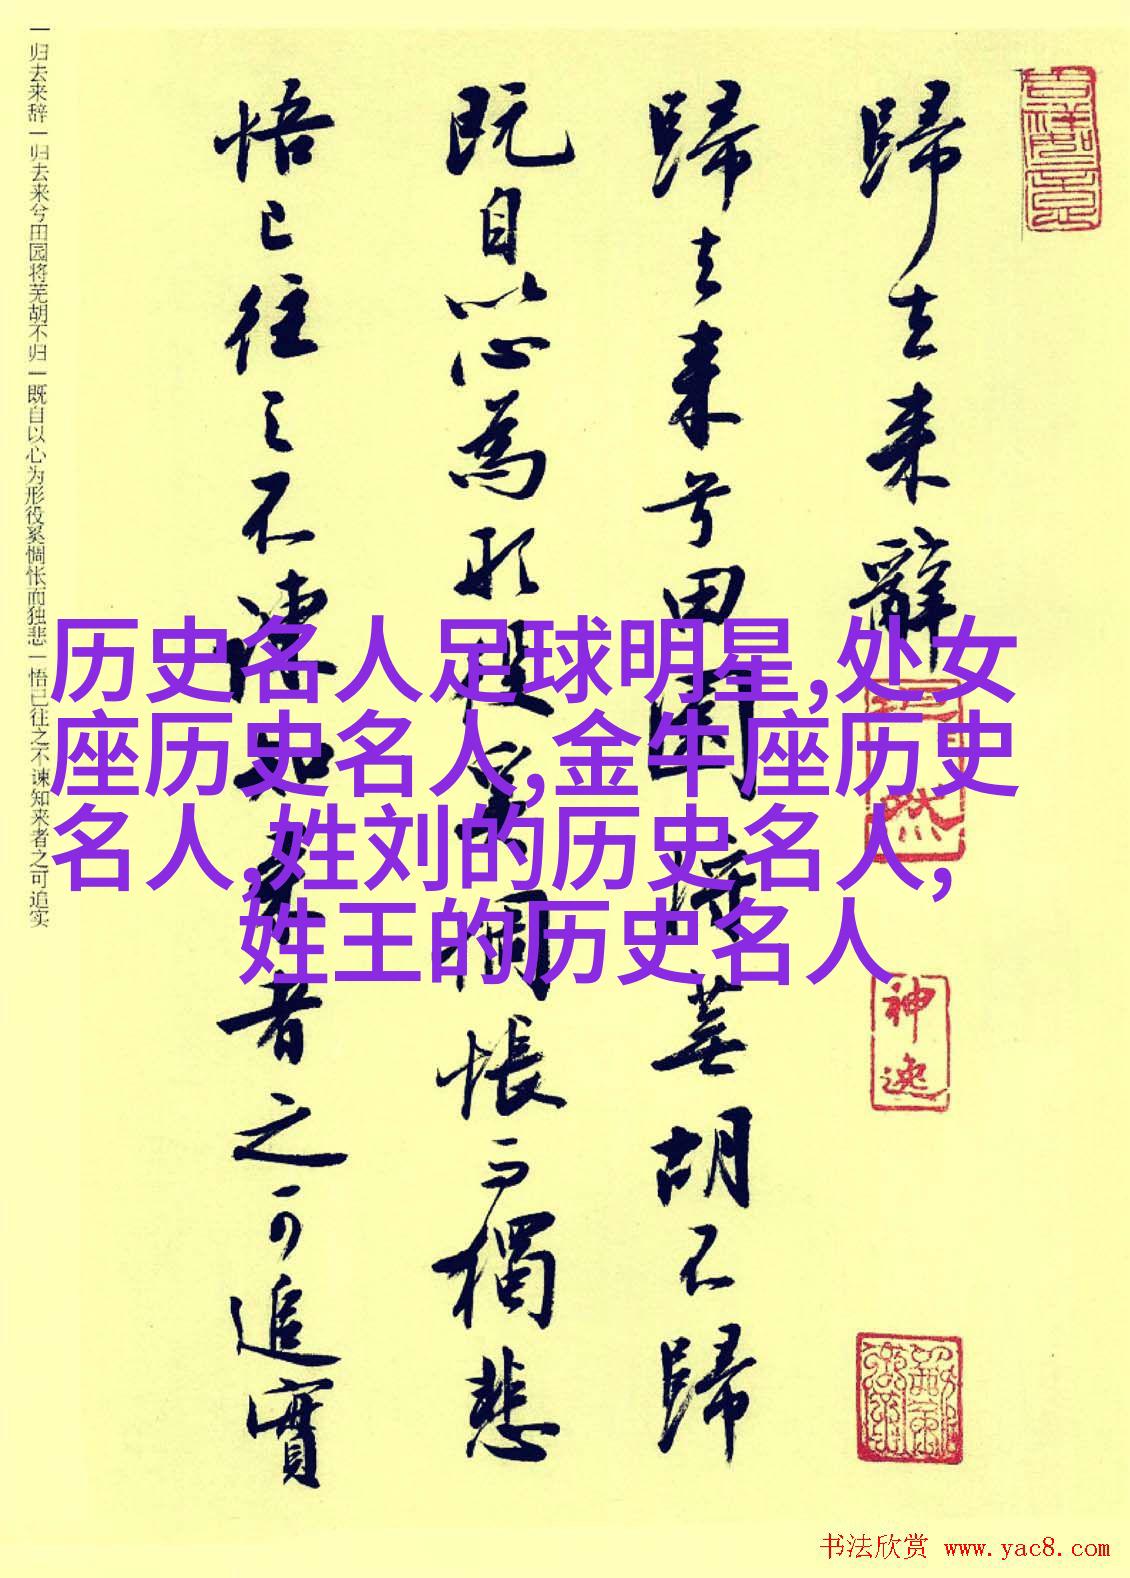 歸去来辭
歸去来兮田園将蕪胡不歸
既自以心為形役奚惆悵而獨悲
悟已往之不諫知来者之可追實
神逸
一归去来辞一归去来兮田园将芜胡不归一既自以心为形役奚惆怅而独悲一悟已往之不谏知来者之可追实
历史名人足球明星,处女
座历史名人,金牛座历史
名人,姓刘的历史名人,
姓王的历史名人
书法欣赏 www.yac8.com